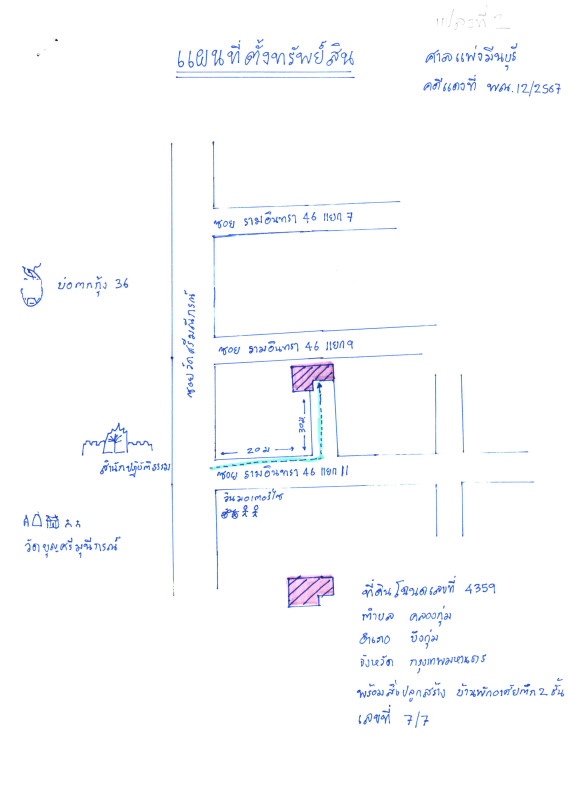 แปลงที่ 2
แผนที่ตั้งทรัพย์สิน
ศาลแพ่งมีนบุรี
คดีแดงที่ พณ.12/2567
ซอย รามอินทรา 46 แยก 7
บ่อตกกุ้ง 36
ซอยวัดศรีมุณีภรณ์
ซอย รามอินทรา 46 แยก 9
30ม
20ม
สำนักปฏิบัติธรรม
ซอย รามอินทรา 46 แยก 11
วินมอเตอร์ไซ
วัดบุญศรีมุนีกรณ์
ที่ดินโฉนดเลขที่ 4359
ตำบล คลองกุ่ม
อำเภอ บึงกุ่ม
จังหวัด กรุงเทพมหานคร
พร้อมสิ่งปลูกสร้าง บ้านพักอาศัยตึก 2 ชั้น
เลขที่ 7/7